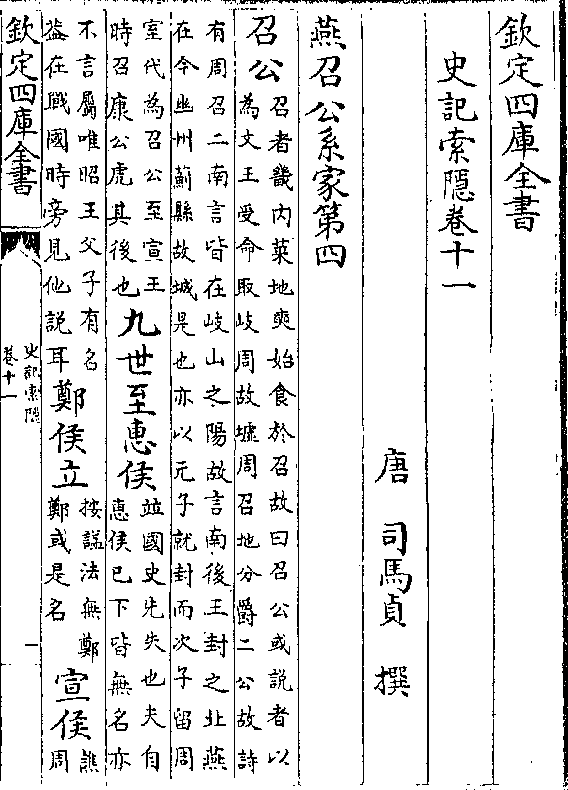 欽定四庫全書
史記索隱卷十一
唐 司馬貞 撰
燕召公系家第四
召公
召者畿内菜地奭始食於召故曰召公或説者以
為文王受命取岐周故墟周召地分爵二公故詩
有周召二南言皆在岐山之陽故言南後王封之北燕
在今幽州薊縣故城是也亦以元子就封而次子留周
室代為召公至宣王
時召康公虎其後也
九世至惠侯
並國史先失也夫自
惠侯已下皆無名亦
不言屬唯昭王父子有名
葢在戰國時旁見他説耳
鄭侯立
按諡法無鄭
鄭或是名
宣侯
譙
周
欽定四庫全書
史記索隱
卷十一
一